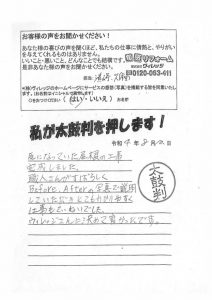 お客様の声をお聞かせください!
あなた様の喜びの声を聞くほど、私たちの仕事に情熱と、やりがい
を与えてくれるものはありません。
いいこと・悪いこと、どんなことでも結構です。
是非あなた様の声をお聞かせください。
リフォーム
株式会社ヴィレッジ
0120-063-411
担当:
(はい・いいえ)
私が太鼓判を押します!
令和4年8月
太鼓判
気になっていた屋根の工事
完成しました。
職人さんがすばらしく
Before,Afterの写真で説明
していただきとてもわかりやすく
仕事もていねいでした。
ヴィレッジさんにたのんで良かったです。